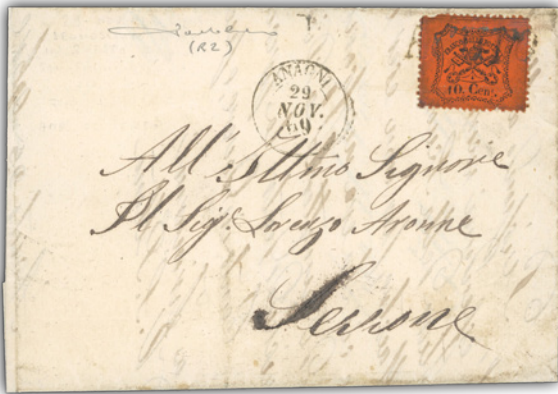 (R2)
ANAGNI
29
NOV.
69
10 Cent.
All' Illmo Signore
Il Sig.r Lorenzo Aronne